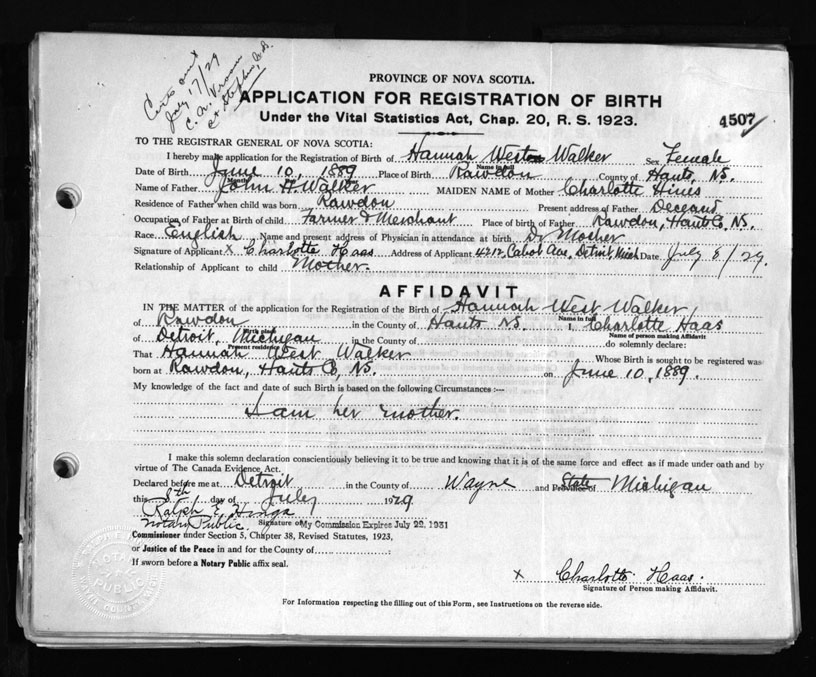 Certs sent
July 17/29
C. A. Vroom
St. Stephen, N.B.
PROVINCE OF NOVA SCOTIA.
APPLICATION FOR REGISTRATION OF BIRTH
Under the Vital Statistics Act, Chap. 20, R. S. 1923.
4507
TO THE REGISTRAR GENERAL OF NOVA SCOTIA:
I hereby make application for the Registration of Birth of Hannah West Walker Sex Female
Name in full
Date of Birth June 10, 1889 Place of Birth Rawdon County of Hants, N.S.
Month Day
Name of Father John H. Walker MAIDEN NAME of Mother Charlotte Hines
Residence of Father when child was born Rawdon Present address of Father Deceasd
Occupation of Father at Birth of child Farmer & Merchant Place of birth of Father Rawdon, Hants Co, N.S.
Race English Name and present address of Physician in attendance at birth Dr Mother
Signature of Applicant x Charlotte Haas Address of Applicant 4212 Cabot Ave, Detroit, Mich Date July 8/29.
Relationship of Applicant to child Mother.
AFFIDAVIT
IN THE MATTER of the application for the Registration of the Birth of Hannah West Walker
Name in full
of Rawdon in the County of Hants N.S. I, Charlotte Haas
Birth place Name of person making Affidavit
of Detroit, Michigan in the County of do solemnly declare:
Present residence
That Hannah West Walker Whose Birth is sought to be registered was
born at Rawdon, Hants Co, N.S. on June 10, 1889.
My knowledge of the fact and date of such Birth is based on the following Circumstances :—
I am her mother.
I make this solemn declaration conscientiously believing it to be true and knowing that it is of the same force and effect as if made under oath and by
virtue of The Canada Evidence Act.
Declared before me at Detroit in the County of Wayne and Province of State Michigan
this 8th day of July 1929
Ralph E.
Notary Public. Signature of My Commission Expires July 22, 1931
Commissioner under Section 5, Chapter 38, Revised Statutes, 1923,
or Justice of the Peace in and for the County of
If sworn before a Notary Public affix seal.
NOTARY
PUBLIC
x Charlotte Haas.
Signature of Person making Affidavit.
For Information respecting the filling out of this Form, see Instructions on the reverse side.